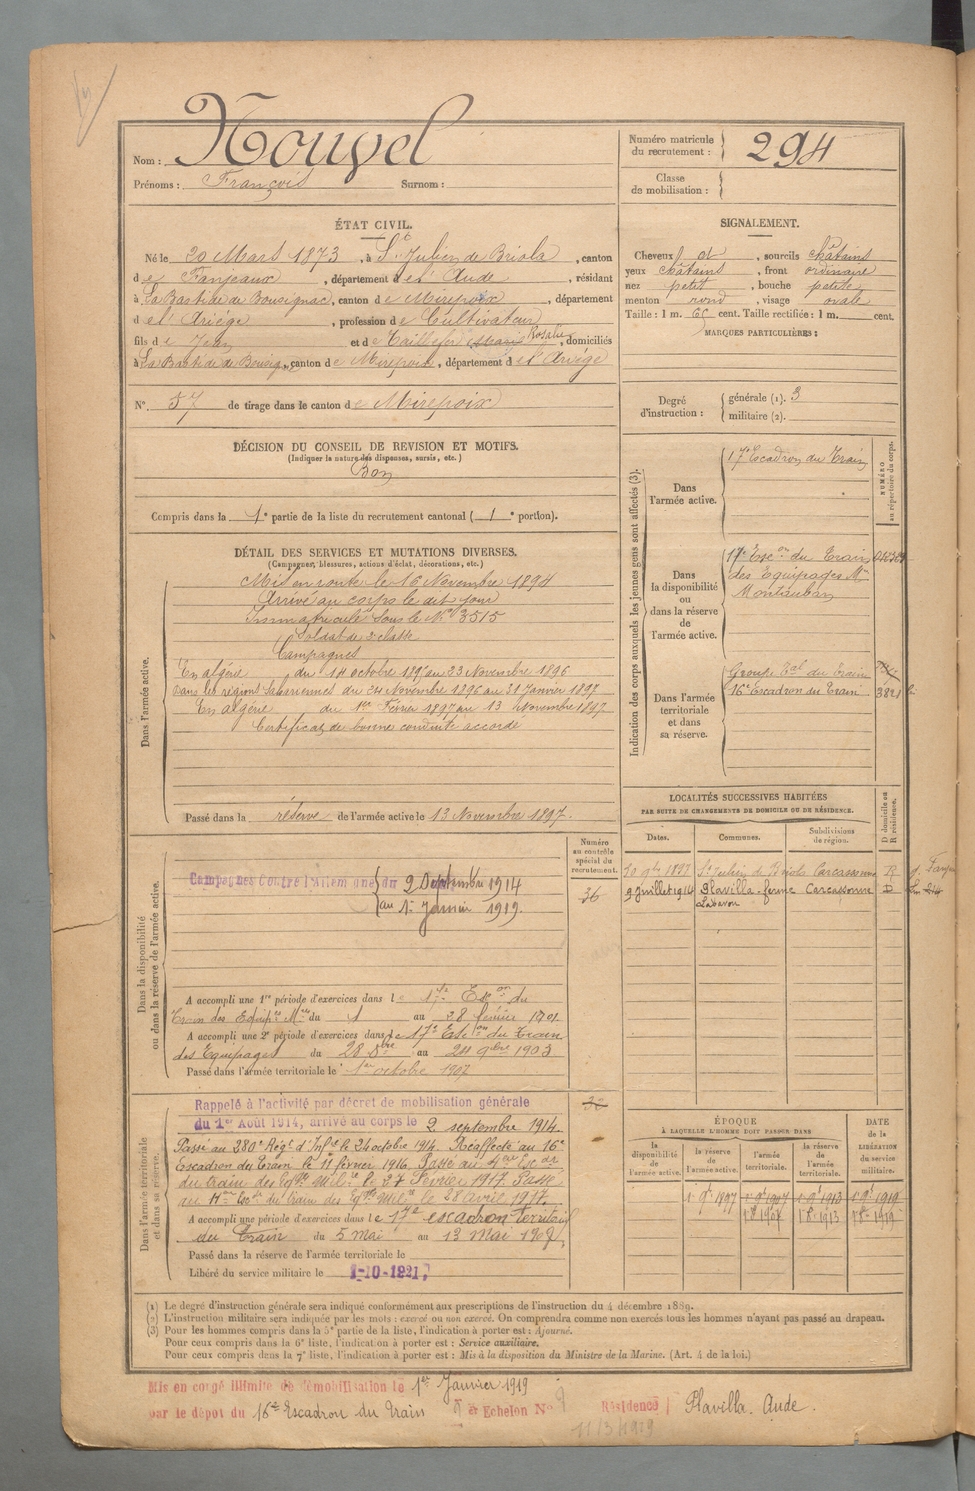 Nom : Nouvel
Prénoms : François Surnom :
Numéro matricule du recrutement : 294
Classe de mobilisation :
ÉTAT CIVIL.
Né le 20 Mars 1873, à St Julien de Briola, canton
de Fanjeaux, département de l'Aude, résidant
à La Bastide de Bousignac, canton de Mirepoix, département
de l'Ariège, profession de Cultivateur
fils de Jean et de Taillefer Marie Rosalie, domiciliés
à La Bastide de Bousignac, canton de Mirepoix, département de l'Ariège
N° 57 de tirage dans le canton de Mirepoix
SIGNALEMENT.
Cheveux et, sourcils châtains
yeux châtains, front ordinaire
nez petit, bouche petite
menton rond, visage ovale
Taille : 1 m. cent. Taille rectifiée : 1 m. cent.
MARQUES PARTICULIÈRES :
Degré d'instruction : générale (1). 3
militaire (2).
DÉCISION DU CONSEIL DE REVISION ET MOTIFS.
(Indiquer la nature des dispenses, sursis, etc.)
Bon
Compris dans la 1e partie de la liste du recrutement cantonal ( 1 e portion).
DÉTAIL DES SERVICES ET MUTATIONS DIVERSES.
(Campagnes, blessures, actions d'éclat, décorations, etc.)
Dans l'armée active.
Mis en route le 16 Novembre 1894
Arrivé au corps le dit jour
Immatriculé sous le No 3515
Soldat de 2e classe
Campagnes
En algérie du 14 octobre 1896 au 23 Novembre 1896
Dans les régions Sahariennes du 24 Novembre 1896 au 31 Janvier 1897
En algérie du 1er Février 1897 au 13 Novembre 1897
Certificat de bonne conduite accordé
Passé dans la réserve de l'armée active le 13 Novembre 1897.
Indication des corps auxquels les jeunes gens sont affectés (3).
NUMÉRO au répertoire du corps.
Dans l'armée active.
17e Escadron du Train
Dans la disponibilité ou dans la réserve de l'armée active.
17e Escon du Train
des Equipages Mre
Montauban
Dans l'armée territoriale et dans sa réserve.
Groupe Tal du Train
16e Escadron du Train 3821
LOCALITÉS SUCCESSIVES HABITÉES
PAR SUITE DE CHANGEMENTS DE DOMICILE OU DE RÉSIDENCE.
Dates. Communes. Subdivisions de région. D domicile ou R résidence.
10 9bre 1897 St Julien de Briola Carcassonne R
9 juillet 1914 Plavilla-ferme Carcassonne D
Dans la disponibilité ou dans la réserve de l'armée active.
Numéro au contrôle spécial du recrutement.
36
Campagnes Contre l'Allemagne du 9 Septembre 1914
au 1er Janvier 1919.
A accompli une 1re période d'exercices dans le 17e Escon du
Train des Equip. Mres du 1 au 28 février 1901
A accompli une 2e période d'exercices dans le 17e Escon du Train
des Equipages du 28 8bre au 24 9bre 1903
Passé dans l'armée territoriale le 1er octobre 1907
Dans l'armée territoriale et dans sa réserve.
Rappelé à l'activité par décret de mobilisation générale
du 1er Août 1914, arrivé au corps le 9 septembre 1914.
Passé au 280e Régt d'Infie le 26 octobre 1914. Réaffecté au 16e
Escadron du Train le 11 février 1916. Passé au Escon
du train des Eqges Milre le 27 Février 1917. Passé
au Escon du train des Eqges Milre le 28 Avril 1917.
A accompli une période d'exercices dans le 17e escadron territorial
du Train du 5 mai au 13 Mai 1909
Passé dans la réserve de l'armée territoriale le
Libéré du service militaire le 1-10-1921,
ÉPOQUE
À LAQUELLE L'HOMME DOIT PASSER DANS
la disponibilité de l'armée active. la réserve de l'armée active. l'armée territoriale. la réserve de l'armée territoriale. DATE de la LIBÉRATION du service militaire.
(1) Le degré d'instruction générale sera indiqué conformément aux prescriptions de l'instruction du 4 décembre 1889.
(2) L'instruction militaire sera indiquée par les mots : exercé ou non exercé. On comprendra comme non exercés tous les hommes n'ayant pas passé au drapeau.
(3) Pour les hommes compris dans la 5e partie de la liste, l'indication à porter est : Ajourné.
Pour ceux compris dans la 6e liste, l'indication à porter est : Service auxiliaire.
Pour ceux compris dans la 7e liste, l'indication à porter est : Mis à la disposition du Ministre de la Marine. (Art. 4 de la loi.)
Mis en congé illimité de démobilisation le 1er Janvier 1919
par le dépôt du 16e Escadron du Train 9 et Echelon No 9 Résidence Plavilla. Aude.
11/3/1919